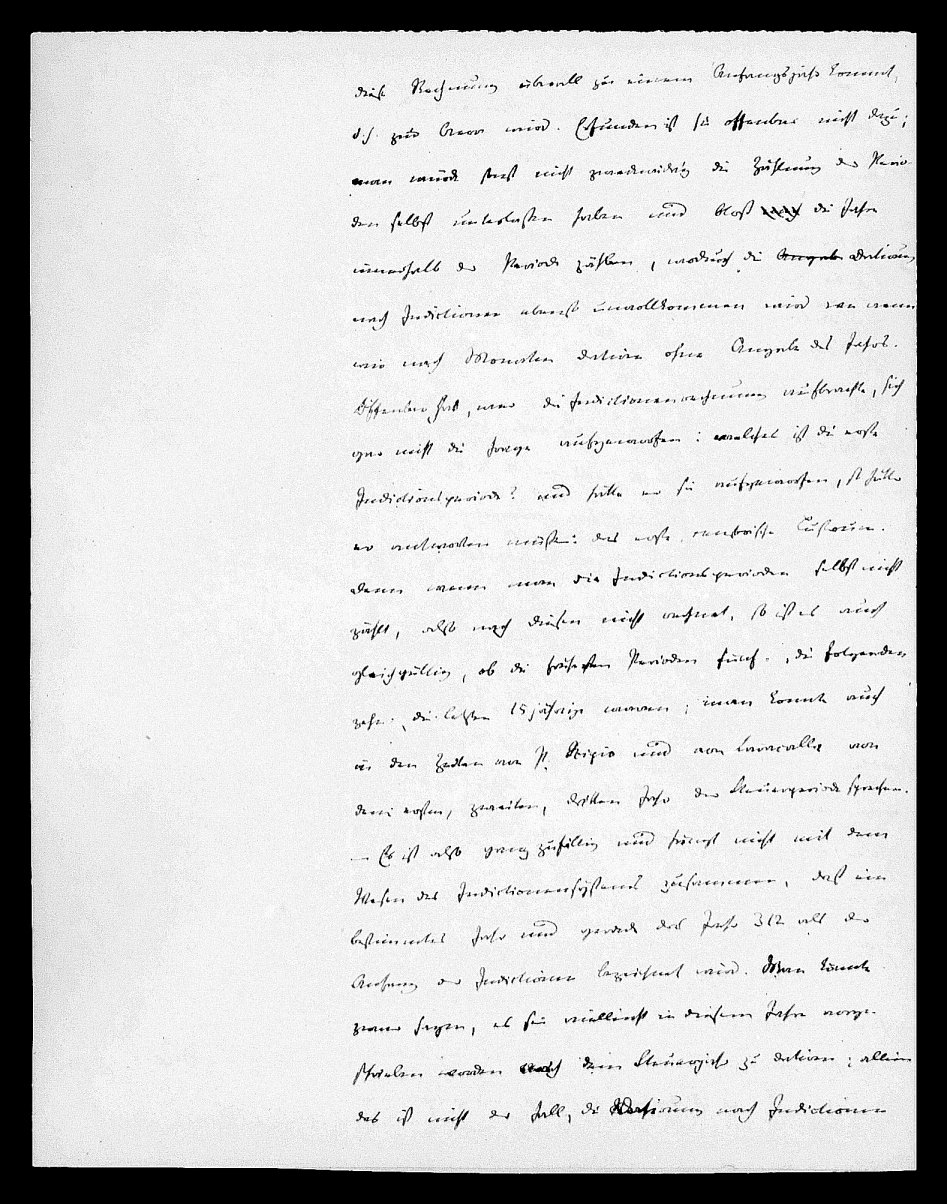 diese Rechnung überall zu einem Anfangsjahr kommt,
d.h. zur Aera wird. Erfunden ist sie offenbar nicht dazu;
man würde sonst nicht zweckwidrig die Zählung der Perio-
den selbst unterlassen haben und bloß nach die Jahre
innerhalb der Periode zählen, wodurch die Angabe Datirung
nach Indictionen ebenso unvollkommen wird wie wenn
wir nach Monaten datiren ohne Angabe des Jahres.
Offenbar hat, wer die Indictionenrechnung aufbrachte, sich
gar nicht die Frage aufgeworfen: welches ist die erste
Indictionsperiode? und hätte er sie aufgeworfen, so hätte
er antworten müssen: das erste censorische Lustrum.
Denn wenn man die Indictionsperioden selbst nicht
zählt, also nach diesen nicht rechnet, so ist es auch
gleichgültig, ob die frühesten Perioden fünf-, die folgenden
zehn-, die letzten 15jährige waren; man konnte auch
in den Zeiten von P. Scipio und von Caracalla von
dem ersten, zweiten, dritten Jahr der Steuerperiode sprechen.
— Es ist also ganz zufällig und hängt nicht mit dem
Wesen des Indictionensystems zusammen, daß ein
bestimmtes Jahr und gerade das Jahr 312 als der
Anfang der Indictionen bezeichnet wird. Man könnte
zwar sagen, es sei vielleicht in diesem Jahre vorge-
schrieben worden nach dem Steuerjahr zu datiren; allein
das ist nicht der Fall, die Datirung nach Indictionen